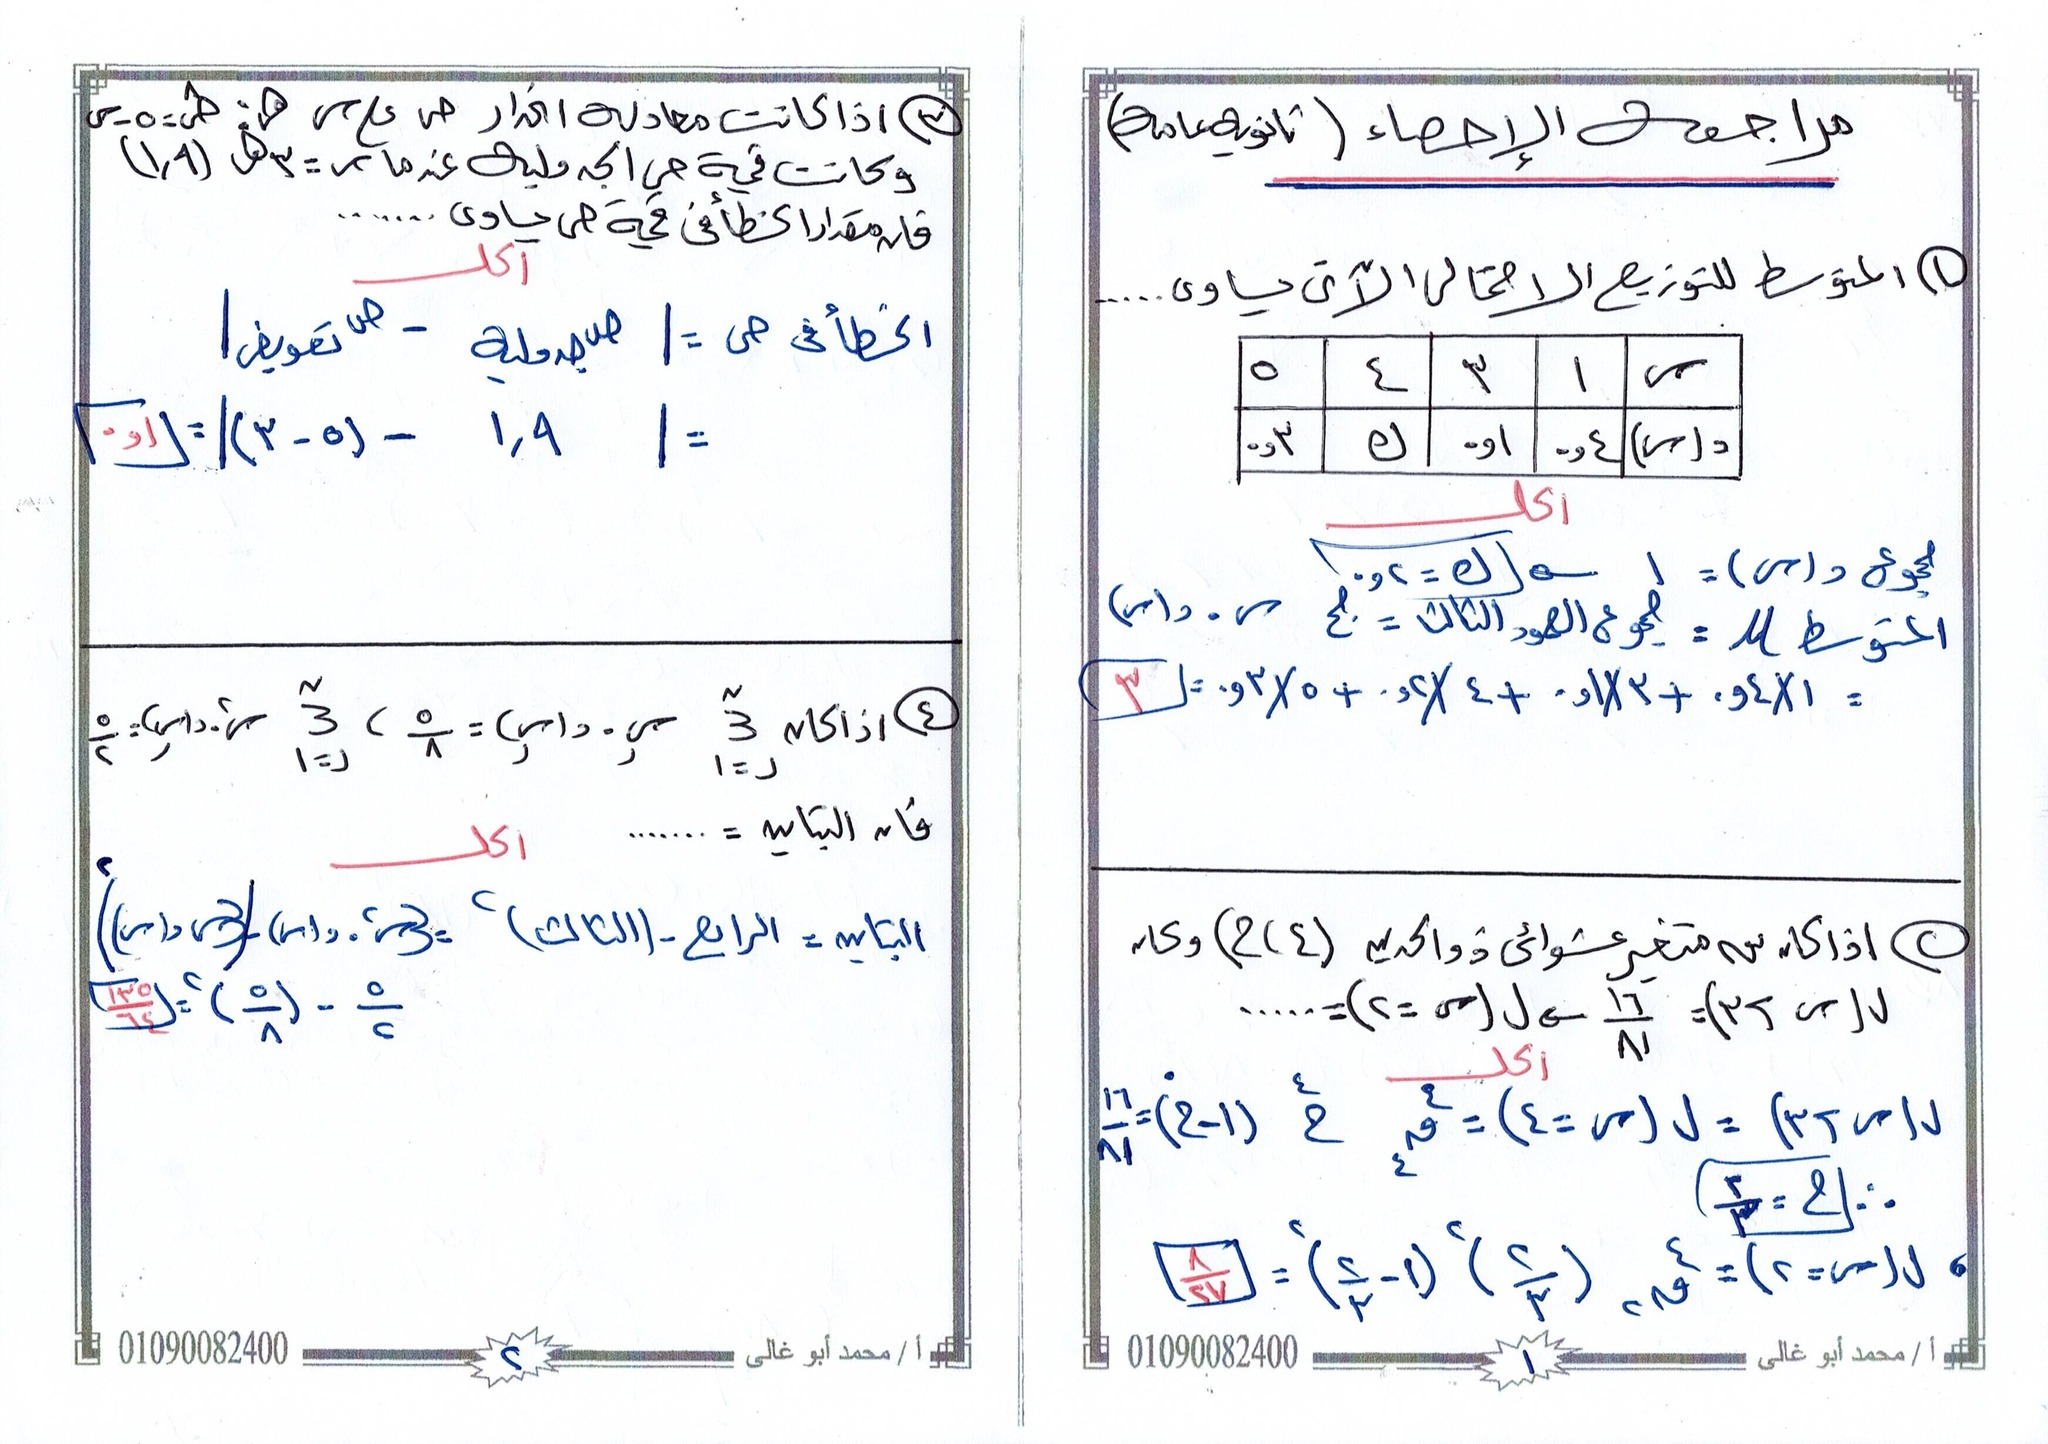 مراجعة الإحصاء (ثانوية عامة)
① المتوسط للتوزيع الاحتمالى الآتى يساوى ......
س ١ ٣ ٤ ٥
د(س) ٤و٠ ١و٠ ك ٣و٠
الحل
مجموع د(س) = ١ ⇐ ك = ٢و٠
المتوسط μ = مجموع العمود الثالث = مج س . د(س)
= ١×٤و٠ + ٣×١و٠ + ٤×٢و٠ + ٥×٣و٠ = ٣
② اذا كان س متغير عشوائى ذو الحدين (٤،ح) وكان
ل(س>٣) = ١٦/٨١ ⇐ ل(س=٢) = ......
الحل
ل(س>٣) = ل(س=٤) = ٤ق٤ ح^٤ (١-ح)^٠ = ١٦/٨١
∴ ح = ٢/٣
، ل(س=٢) = ٤ق٢ (٢/٣)^٢ (١-٢/٣)^٢ = ٨/٢٧
أ / محمد أبو غالى ١ 01090082400
③ اذا كانت معادلة انحدار ص على س هى: ص̂=٥-س
وكانت قيمة ص الجدولية عندما س=٣ هى (١,٩)
فان مقدار الخطأ فى قيمة ص يساوى .......
الحل
الخطأ فى ص = | ص جدولية - ص تعويض |
= | ١,٩ - (٥-٣) | = ١و٠
④ اذا كان Σ(ر=١ إلى ن) سر . د(سر) = ٥/٨ ، Σ(ر=١ إلى ن) سر^٢ . د(سر) = ٥/٢
فان التباين = .......
الحل
التباين = الرابع - (الثالث)^٢ = Σس^٢ . د(س) - (Σس د(س))^٢
٥/٢ - (٥/٨)^٢ = ١٣٥/٦٤
أ / محمد أبو غالى ٢ 01090082400